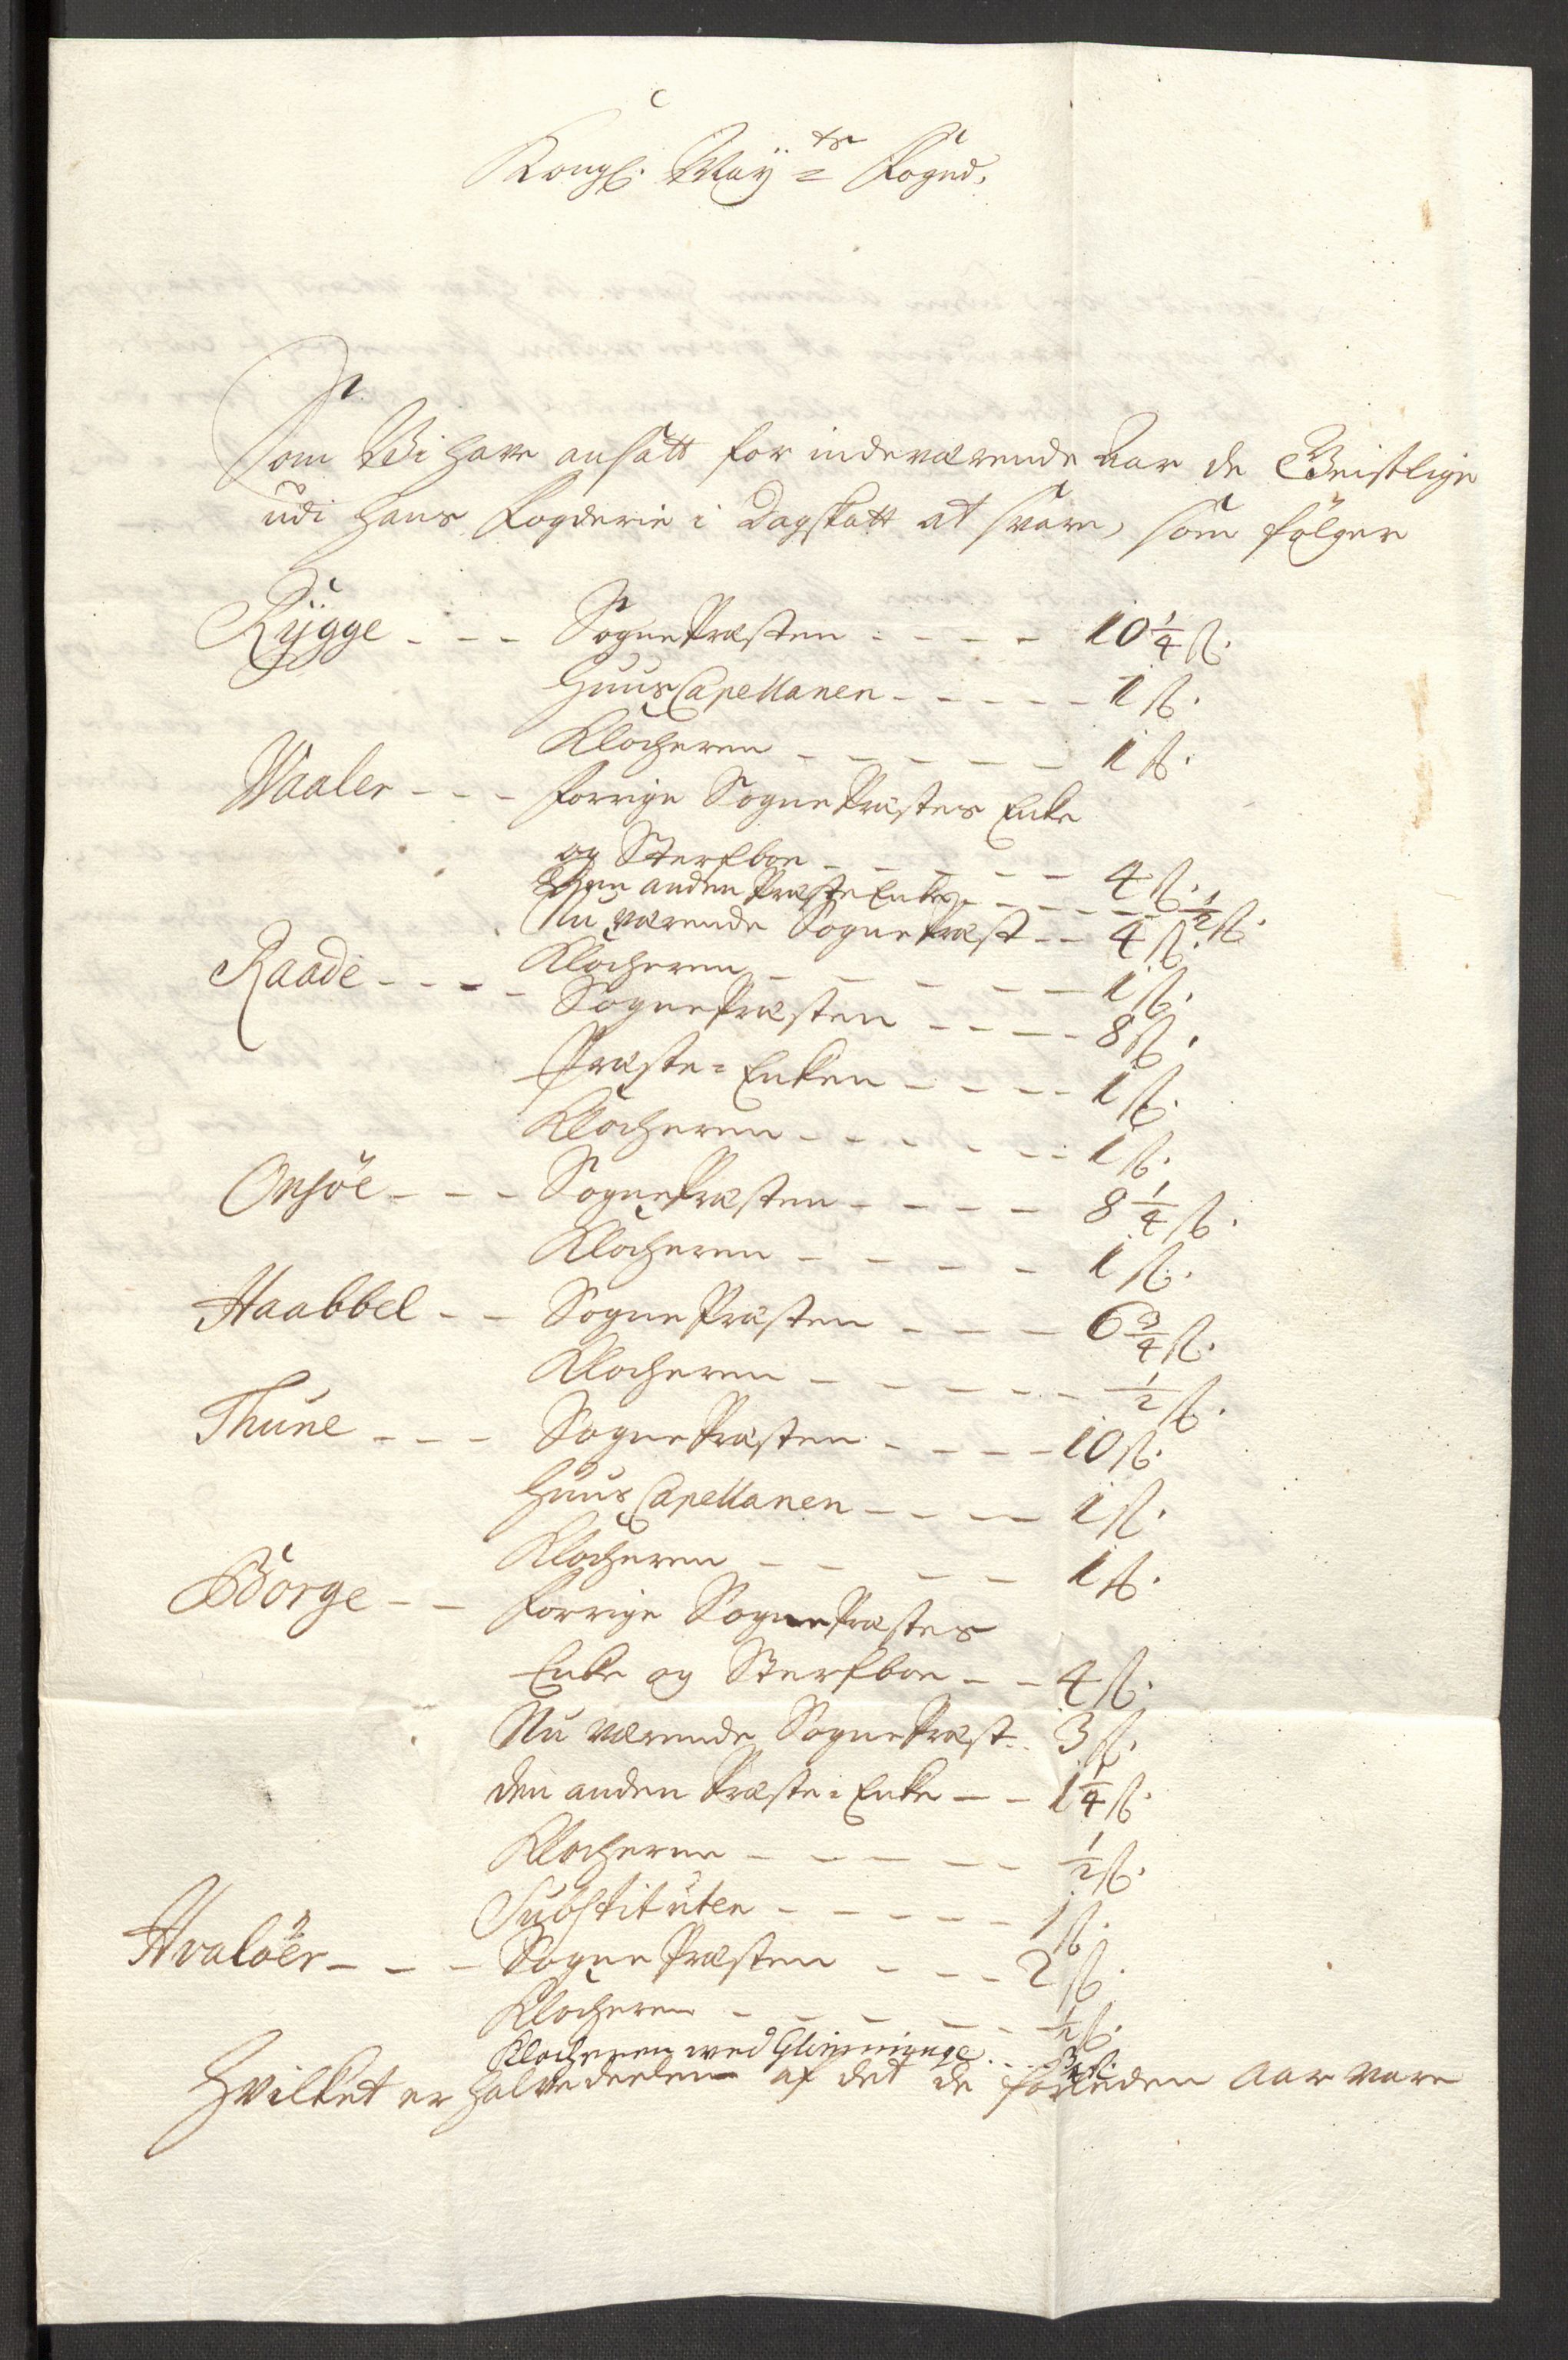 Kongl. May.ts Fogud,
Som Wi have ansatt for indeværende Aar de Geistlige
udi hans Fogderie i Dagskatt at svare, som følger
Rÿgge - - - SognePræsten - - - - 10 1/4 ß.
HuusCapellanen - - - - - 1 ß.
Klocheren - - - - - 1 ß.
Waaler - - - forrige SognePræstes Enke
og Sterfboe - - - - - 4 ß.
Den anden Præste Enke - - - - - 1/2 ß.
Nu værende SognePræst - - 4 ß.
Klocheren - - - - - 1 ß.
Raade - - - - SognePræsten - - - - 8 ß.
Præste-Enken - - - - 1 ß.
Klocheren - - - - - 1 ß.
Onsöe - - - SognePræsten - - - - 8 1/4 ß.
Klocheren - - - - - 1 ß.
Haabbel - - SognePræsten - - - 6 3/4 ß.
Klocheren - - - - - - 1/2 ß.
Thune - - - SognePræsten - - - - 10 ß.
Huus Capellanen - - - - 1 ß.
Klocheren - - - - 1 ß.
Borge - - forrige SognePræstes
Enke og Sterfboe - - 4 ß.
Nu værende SognePræst - 3 ß.
den anden Præste-Enke - - 1 1/4 ß.
Klocheren - - - - - 1/2 ß.
Substituten - - - - - 1 ß.
Hvalöer - - - SognePræsten - - - 2 ß.
Klocheren - - - - - 1/2 ß.
Klocheren wed Glimminge - - - ß.
Hvilket er halvedeelen af det de forleden Aar vare